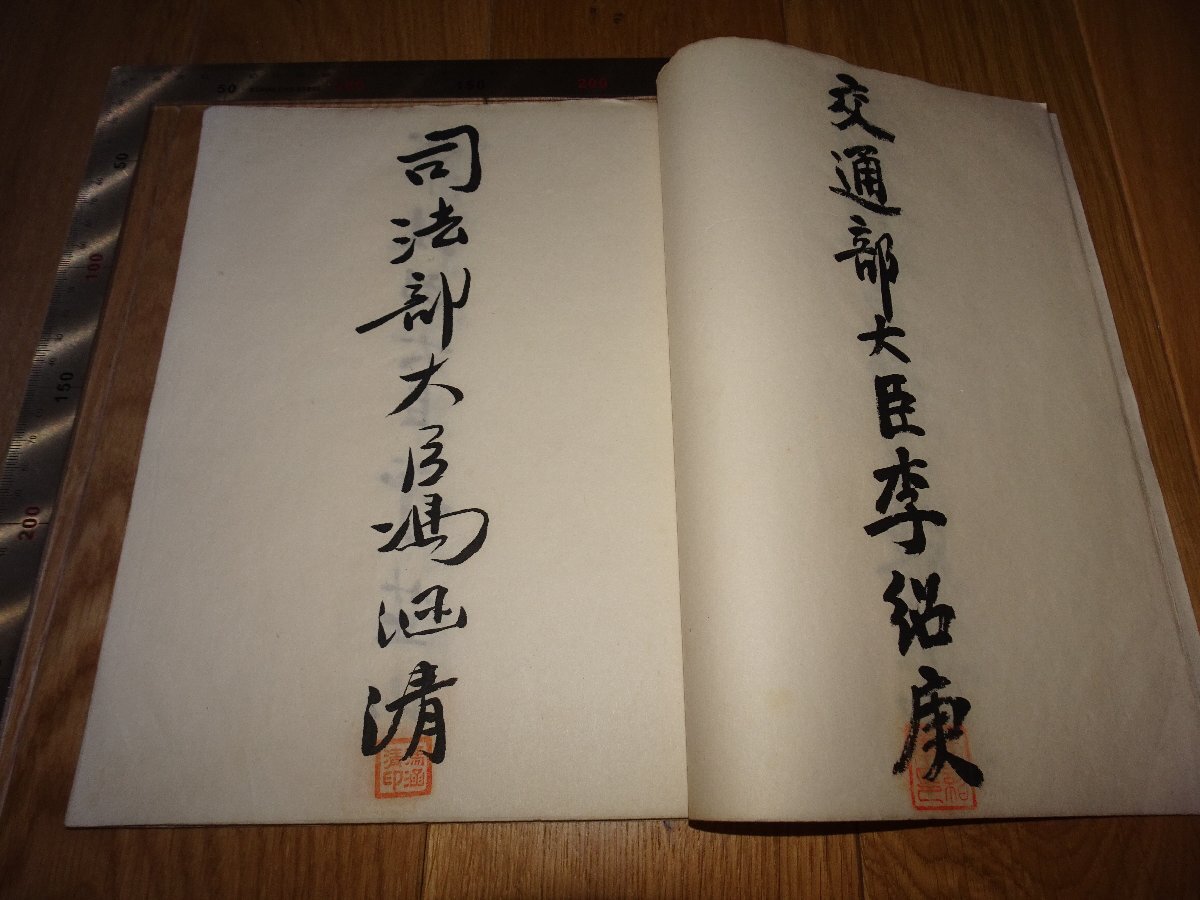 交通部大臣李紹庚
司法部大臣馮涵清
馮涵
清印
50
100
150
200
50
100
150
200